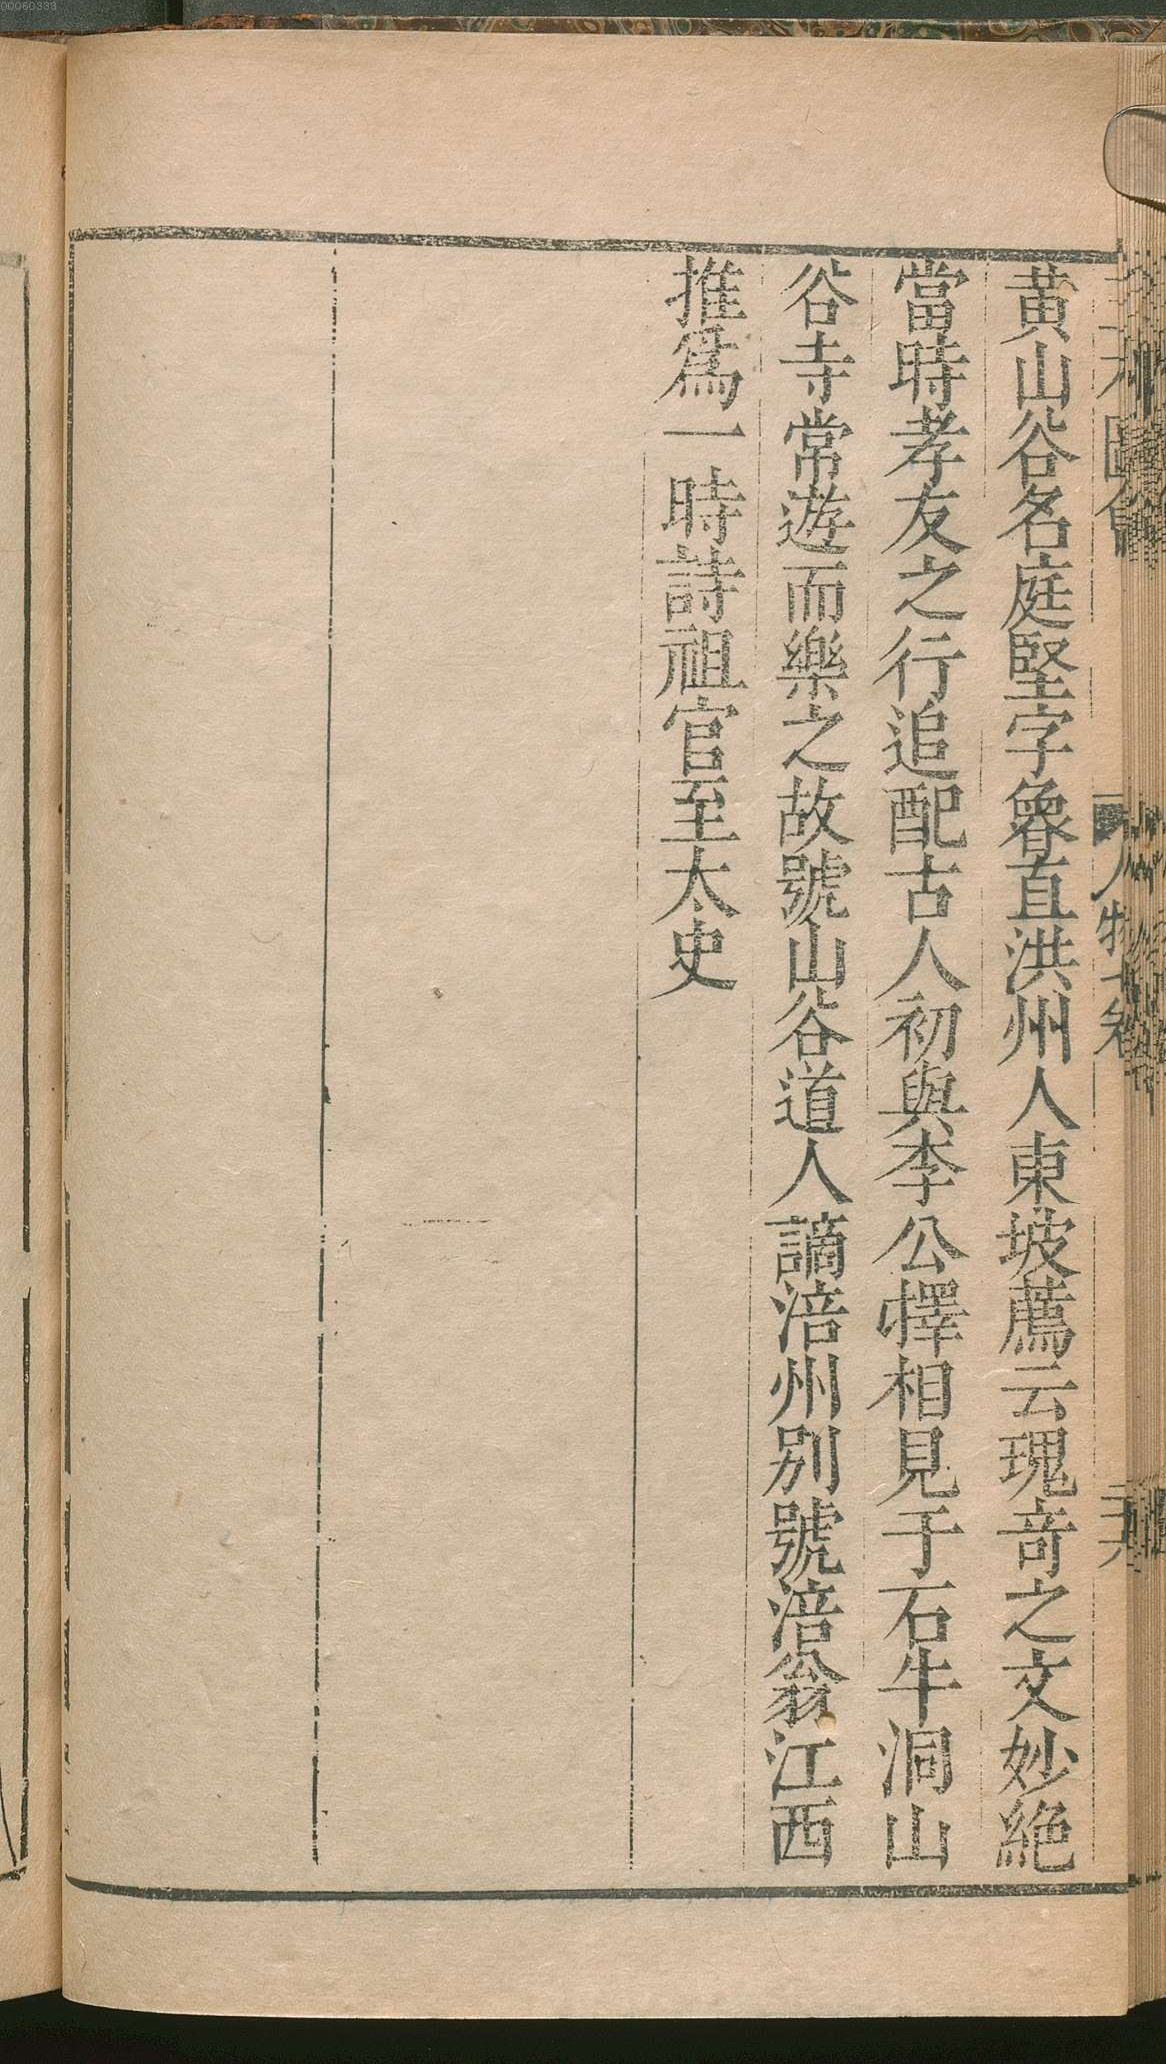 00060333
黄山谷名庭堅字魯直洪州人東坡薦云瑰奇之文妙絶
當時孝友之行追配古人初與李公擇相見于石牛洞山
谷寺常遊而樂之故號山谷道人謫涪州別號涪翁江西
推爲一時詩祖官至太史